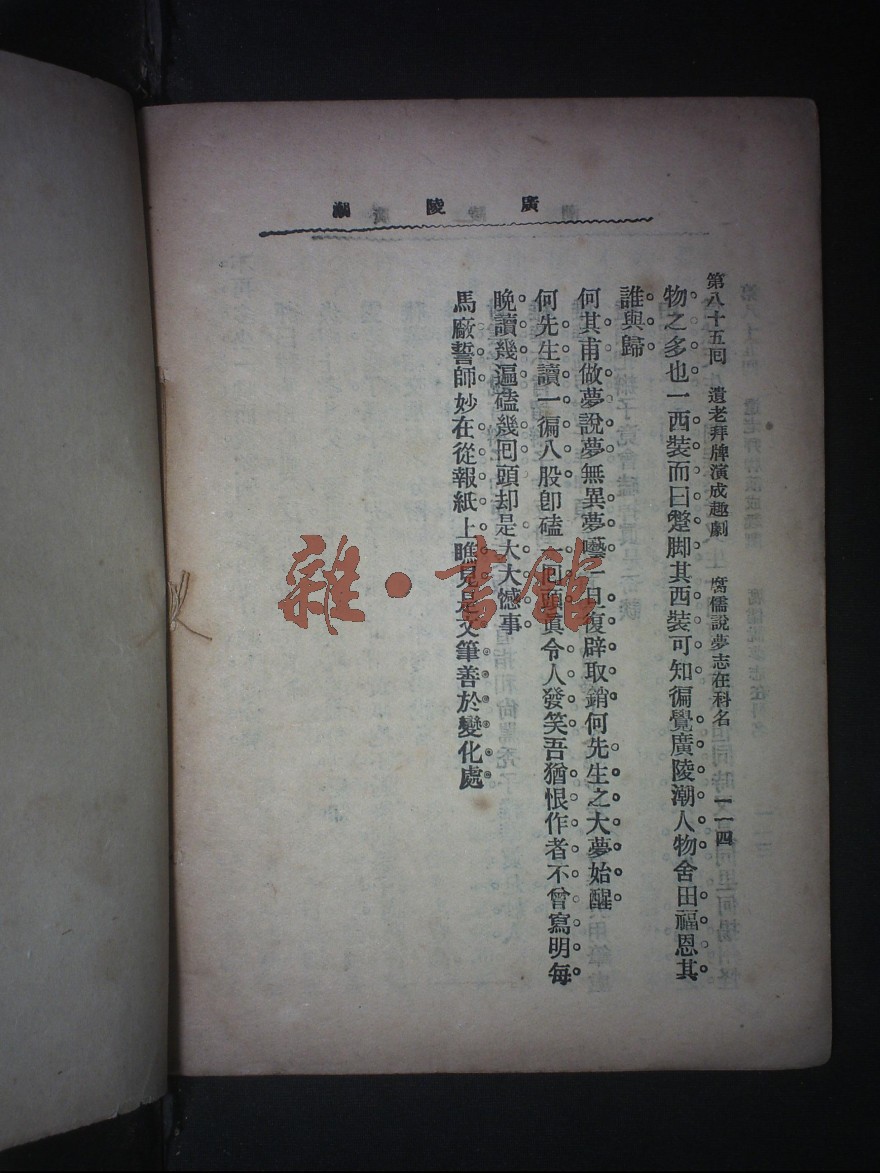 廣陵潮
第八十五回 遺老拜牌演成趣劇 腐儒說夢志在科名 一一四
物之多也一西裝而曰蹩脚其西裝可知徧覺廣陵潮人物舍田福恩其
誰與歸
何其甫做夢說夢無異夢囈一旦復辟取銷何先生之大夢始醒
何先生讀一徧八股卽磕一回頭眞令人發笑吾猶恨作者不曾寫明每
晚讀幾遍磕幾回頭却是大大憾事
馬廠誓師妙在從報紙上瞧見是文筆善於變化處
雜·書館